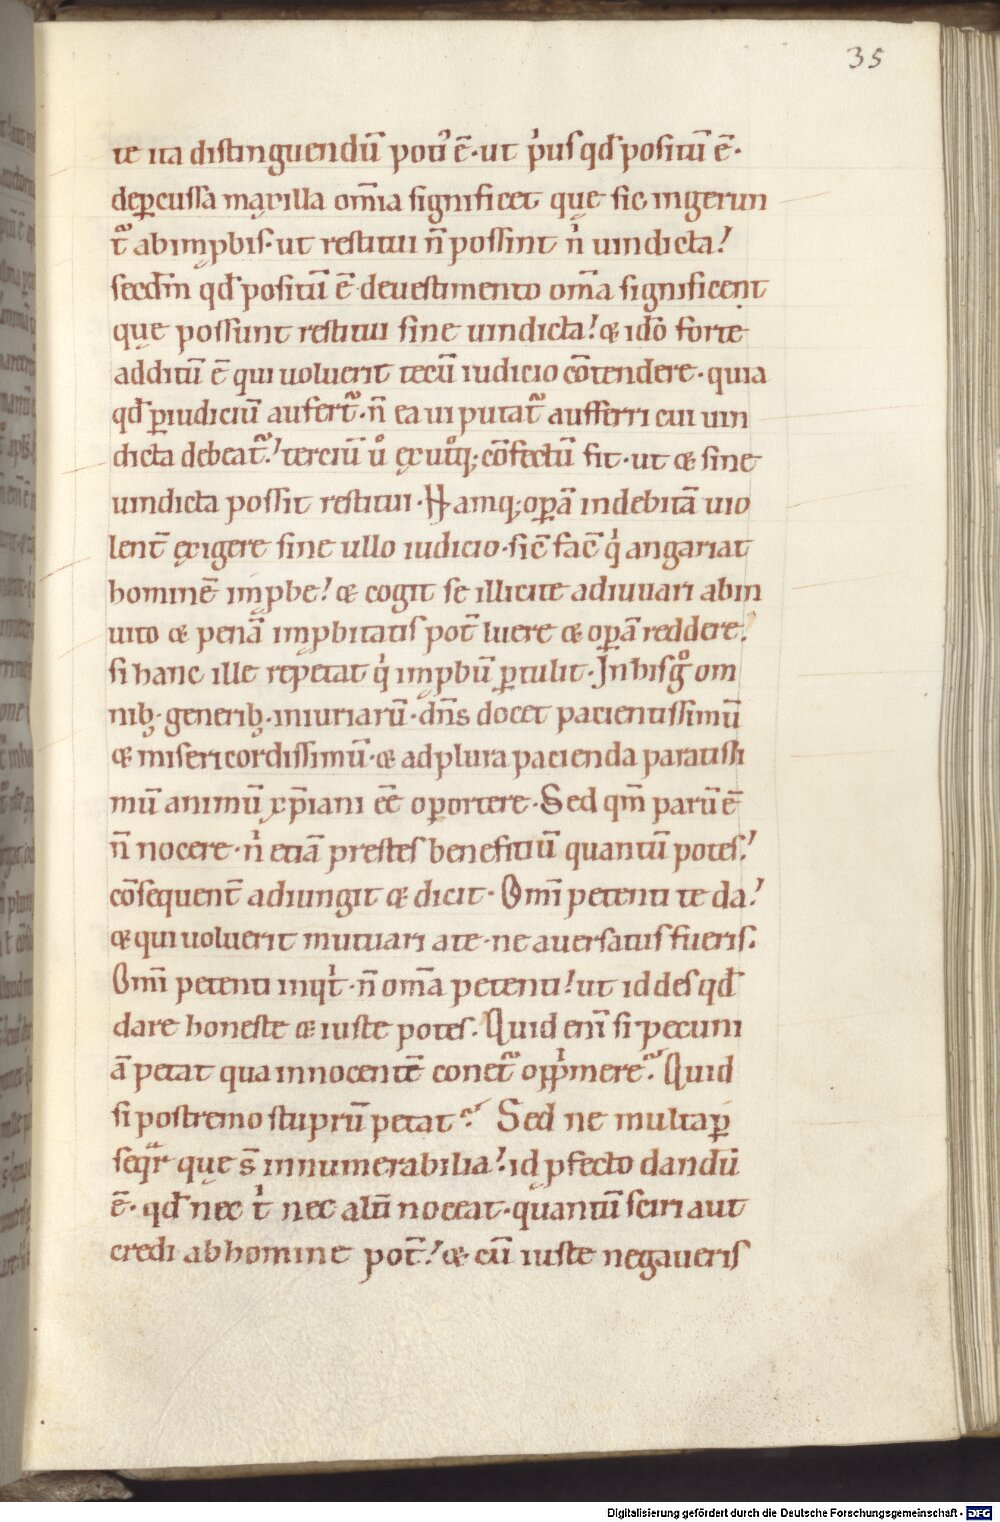 35
te ita distinguendū poti᷒ ē· ut p̓us qđ positū ē·
de ꝑcussa maxilla om̄ia significet quę sic ingerun
t᷑ ab imꝓbis· ut restitui n̄ possint n̓ uindicta!
secđm qđ positū ē de uestimento om̄a significent
quę possunt restitui sine uindicta! & idō forte
additū ē qui uoluerit tecū iudicio cōtendere· quia
qđ ꝑ iudiciū aufert᷑· n̄ ea ui putat᷑ aufferri cui uin
dicta debeat᷑! terciū ů ex utͦq; cōfectū sit· ut & sine
uindicta possit restitui· Namq; oꝑā indebitā uio
lent̄ exigere sine ullo iudicio· sic̄ fac̄ qͥ angariat
hominē imꝓbe! & cogit se illicite adiuuari ab in
uito & penā imꝓbitatis pot̄ luere & oꝑā reddere!
si hanc ille repetat qͥ imꝓbū ꝑtulit· In his gͦ om
nib; generib; iniuriarū· dn̄s docet pacientissimū
& misericordissimū· & ad plura pacienda paratissi
mū animū xp̄iani ee̅ oportere· Sed qm̄ parū ē
n̄ nocere· n̓ etiā prestes benefitiū quantū potes!
cōsequent̄ adiungit & dicit· Om̄i petenti te da!
& qui uoluerit mutuari a te· ne auersatus fueris.
Om̄i petenti inqͥt· n̄ om̄a petenti! ut id des qđ
dare honeste & iuste potes. Quid eni̅ si pecuni
ā petat qua innocentē conet᷑ opp̓mere? Quid
si postremo stuprū petat? Sed ne multa ꝑ
seqᷓr quę s̄ innumerabilia! id ꝓfecto dandū
ē· qđ nec tͥ nec alii̅ noceat· quantū sciri aut
credi ab homine pot̄! & cū iuste negaueris
Digitalisierung gefördert durch die Deutsche Forschungsgemeinschaft - DFG